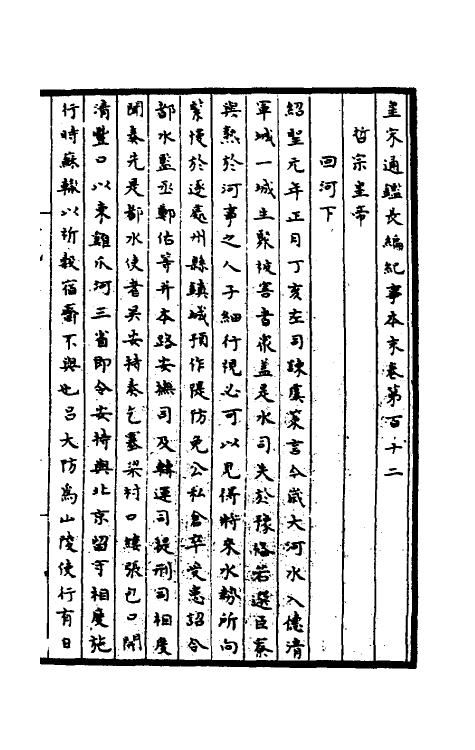 皇宋通鑑長編紀事本末卷第百十二
哲宗皇帝
回河下
紹聖元年正月丁亥左司諫虞策言今歲大河水入德清
軍城一城生聚被害者衆蓋是水司失於豫備若選臣寮
與熟於河事之人子細行視必可以見得將來水勢所向
緊慢於逐處州縣鎮城預作隄防免公私倉卒受患詔令
都水監丞鄭佑等并本路安撫司及轉運司提刑司相度
聞奏先是都水使者吳安持奏乞塞梁村口縷張包口開
清豐口以東雞爪河三省即令安持與北京留守相度施
行時蘇轍以祈穀宿齋不與也呂大防為山陵使行有日